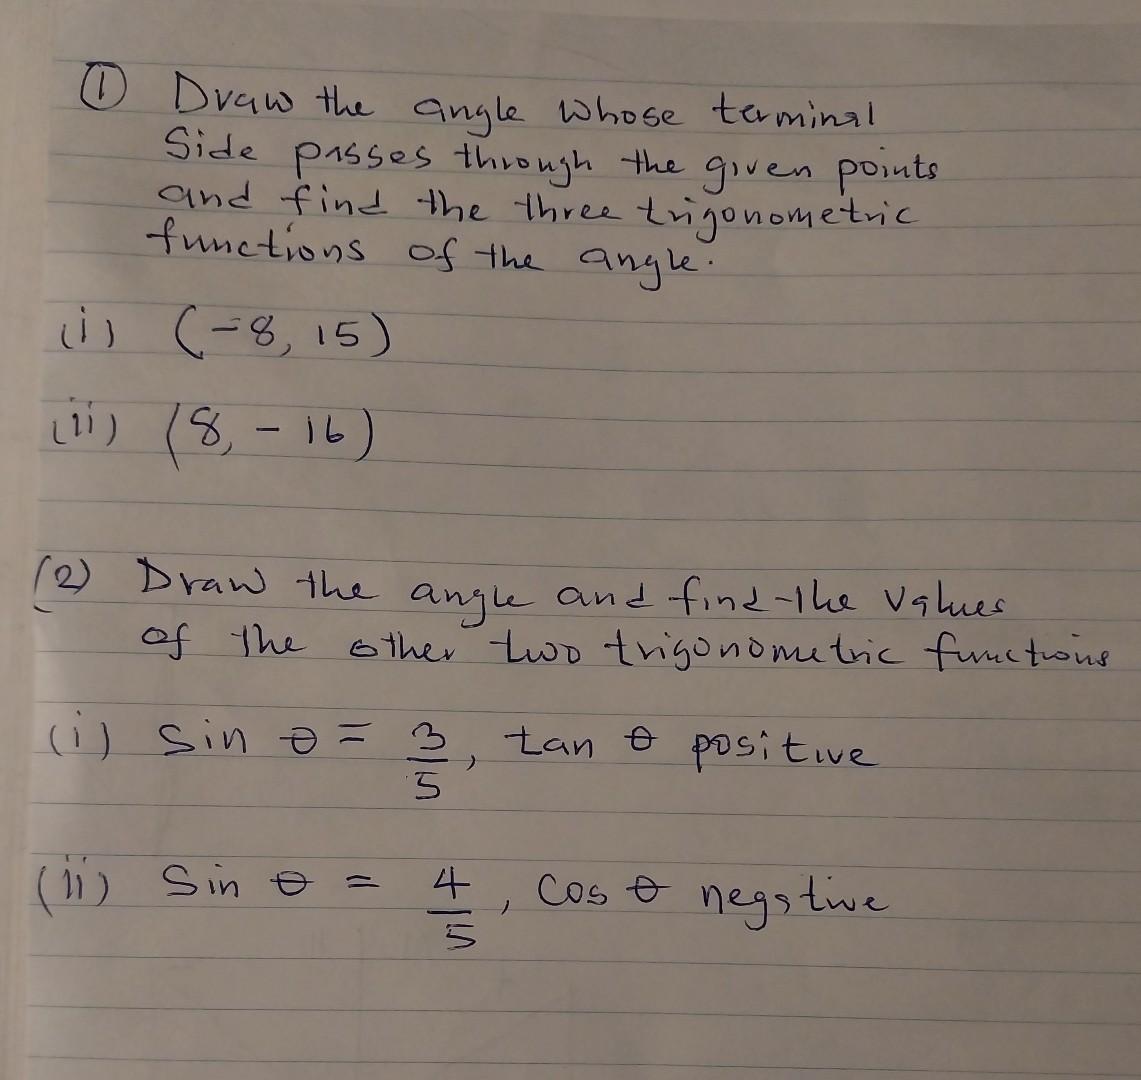 ① Draw the angle whose terminal
Side passes through the given points
and find the three trigonometric
functions of the angle.
(i) (-8, 15)
(ii) (8, - 16)
(2) Draw the angle and find the values
of the other two trigonometric functions
(i) Sin θ = 3/5, tan θ positive
(ii) Sin θ = 4/5, Cos θ negative